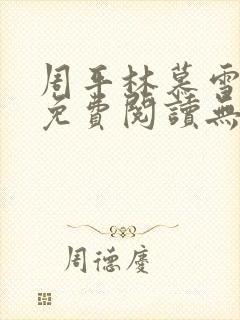 周平林慕雪
免費閱讀無
周德慶